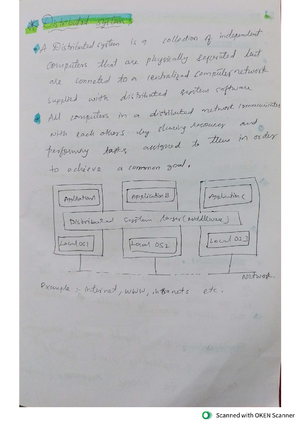 Distributed System
A Distributed system is a collection of independent
computers that are physically separated but
are conneted to a centralized computer network
supplied with distributed system software
All computers in a distributed network communicates
with each others by sharing resources and
performing tasks assigned to them in order
to achieve a common goal.
Application A Application B Application C
Distributed system layer (middleware)
Local OS1 Local OS2 Local OS3
Network
Example - Internet, WWW, intranets etc.
Scanned with OKEN Scanner